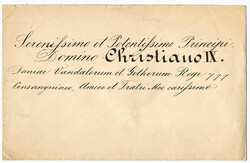 Serenissimo et Potentissimo Principi
Domino Christiano IX.
Daniae Vandalorum et Gothorum Regi
Consanguineo, Amico et Fratri Meo carissimo